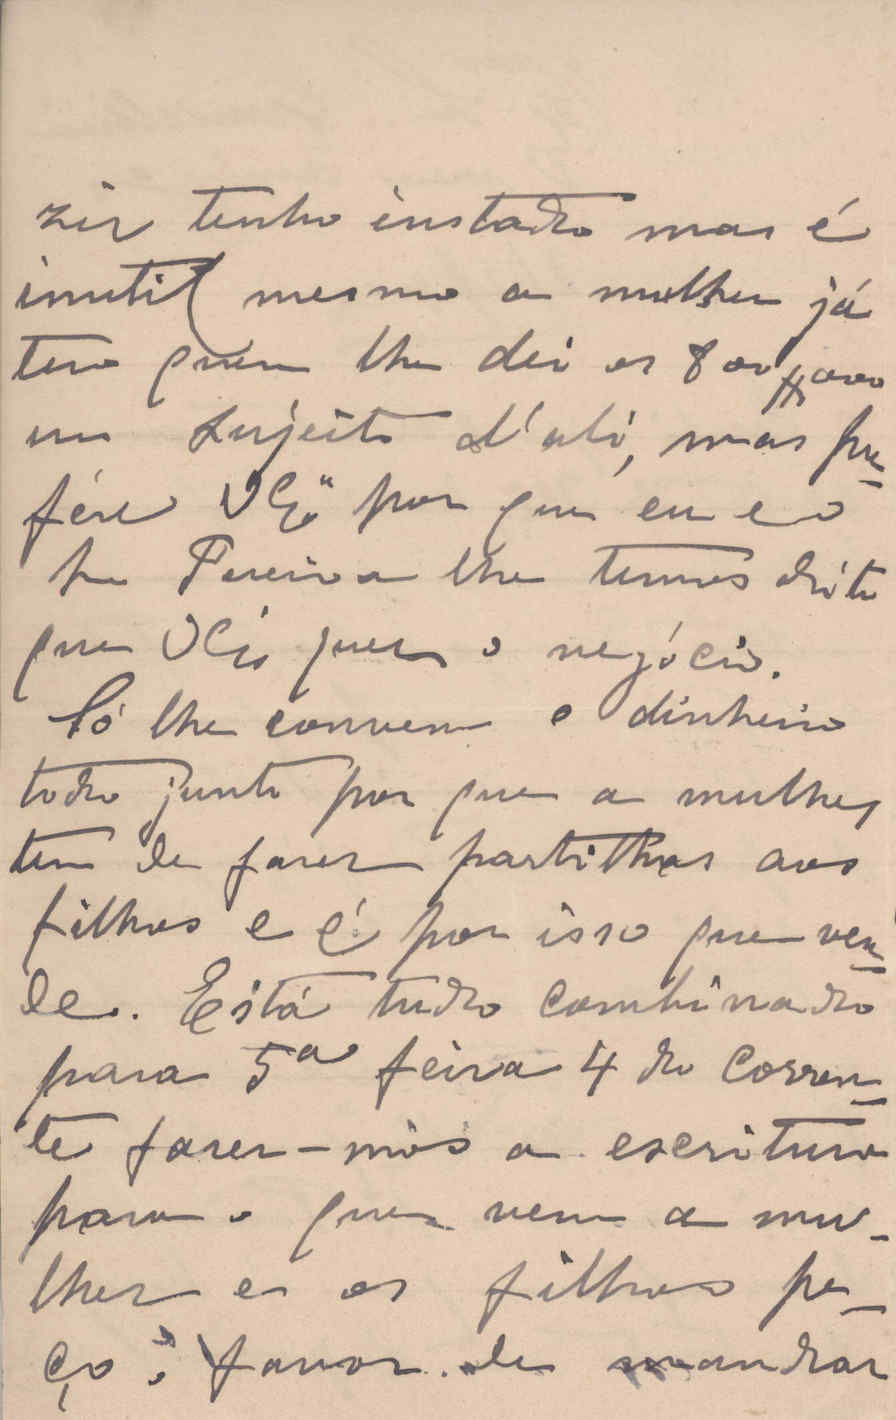 zir tenho instado mas é
inutil mesmo a mulher já
tem quem lhe dei os 800$000
um sujeito d'ali, mas pre-
fére VExª por que eu e o
Pe Pereira lhe temos dito
que VExª quer o negócio.
Só lhe convem o dinheiro
todo junto por que a mulher
tem de fazer partilhas aos
filhos e é por isso que ven-
de. Está tudo combinado
para 5ª feira 4 do corren-
te fazer-mos a escritura
para o que vem a mu-
lher e os filhos pe-
ço o favor de mandar